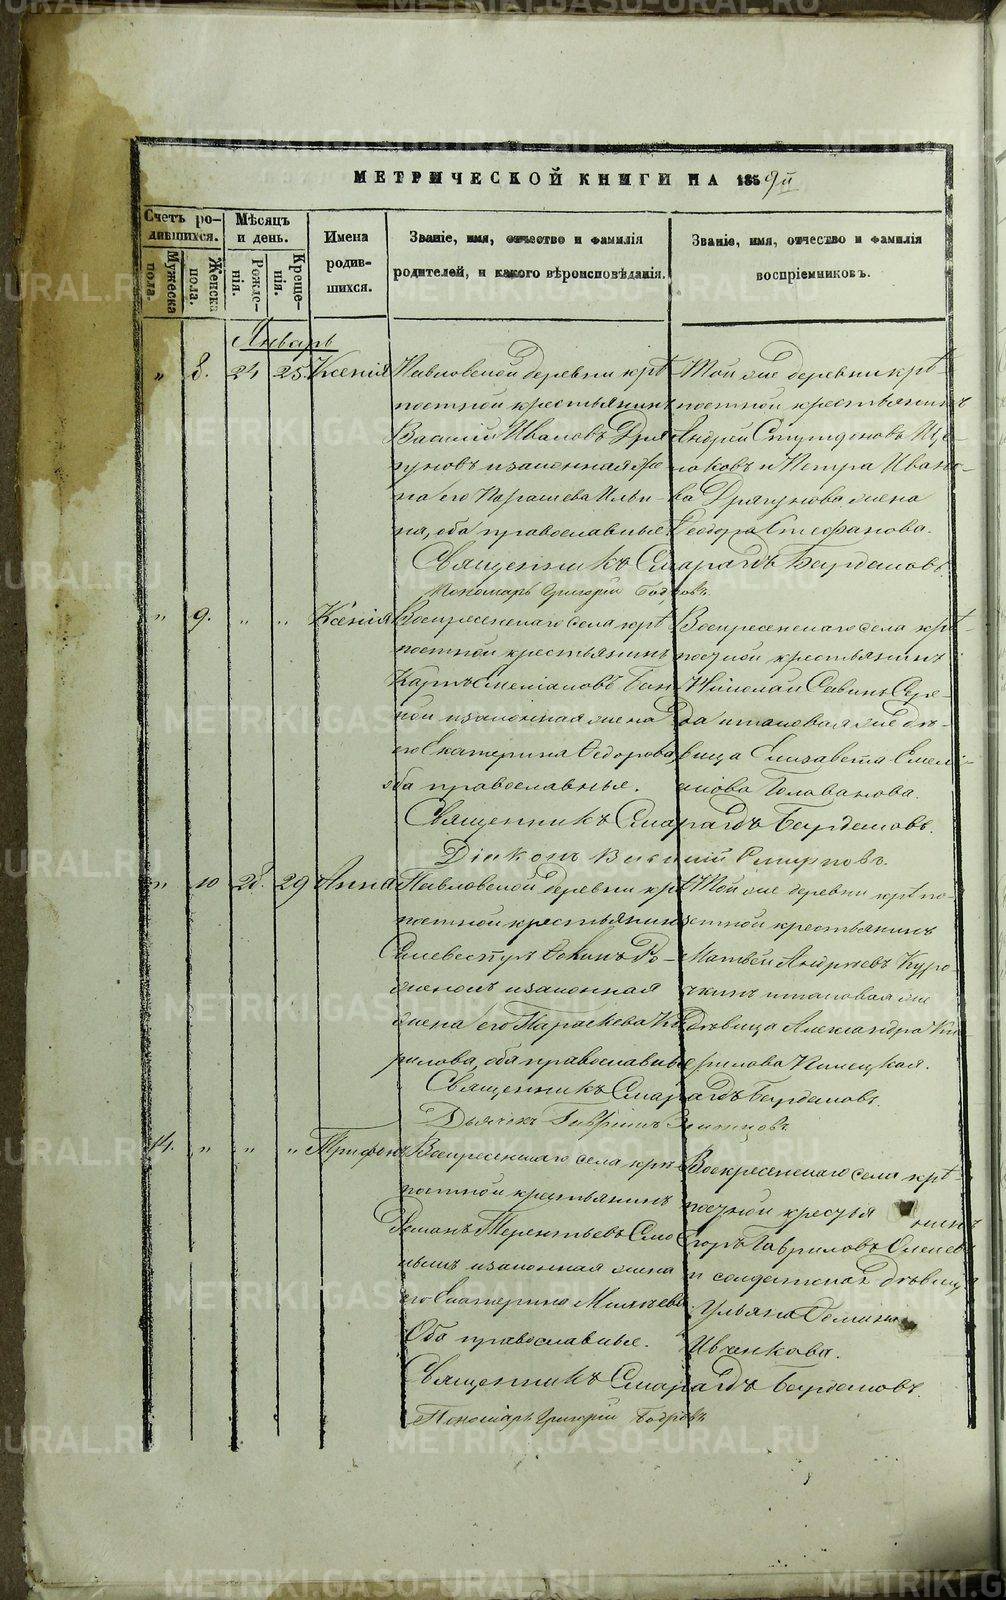 МЕТРИЧЕСКОЙ КНИГИ НА 1859й
Счетъ ро-
дившихся.
Мѣсяцъ
и день.
Имена
родив-
шихся.
Званіе, имя, отчество и фамилія
родителей, и какого вѣроисповѣданія.
Званіе, имя, отчество и фамилія
воспріемниковъ.
Мужеска
пола.
Женска
пола.
Рожде-
нія.
Креще-
нія.
Январь
„ 8. 24 25. Ксенія
Павловской деревни крѣ-
постной крестьянинъ
Василій Ивановъ Дря-
гуновъ и законная же-
на его Ильи-
на, оба православные.
Той же деревни крѣ-
постной крестьянинъ
Андрей
и Петра Ивано-
ва Дрягунова жена
Ѳеодора Стефанова.
Священникъ Смарагдъ Бурдаковъ.
Пономарь Григорій
„ 9. „ „ Ксенія
Воскресенскаго села крѣ-
постной крестьянинъ
Карпъ Емеліановъ
и законная жена
его Екатерина Ѳедорова
оба православные.
Воскресенскаго села крѣ-
постной крестьянинъ
Николай Савинъ
и таковая же дѣ-
вица Елисавета Емелі-
анова Голованова.
Священникъ Смарагдъ Бурдаковъ.
Діаконъ Василій Смирновъ.
„ 10 28. 29 Анна
Павловской деревни крѣ-
постной крестьянинъ
Силевестръ
и законная
жена его Параскева Ки-
рилова, оба православные
Той же деревни крѣпо-
стной крестьянинъ
Матвей Андреевъ Куро-
чкинъ и таковая же
дѣвица Александра Ки-
рилова
Священникъ Смарагдъ Бурдаковъ.
Дьячекъ Гавріилъ
14. „ „ „ Трифонъ
Воскресенскаго села крѣ-
постной крестьянинъ
Романъ Терентьевъ
и законная жена
его Екатерина
Оба православные.
Воскресенскаго села крѣ-
постной крестья нинъ
Егоръ Гавриловъ
и солдатская дѣвица
Ульяна
Ивженкова.
Священникъ Смарагдъ Бурдаковъ.
Пономарь Григорій
METRIKI.GASO-URAL.RU